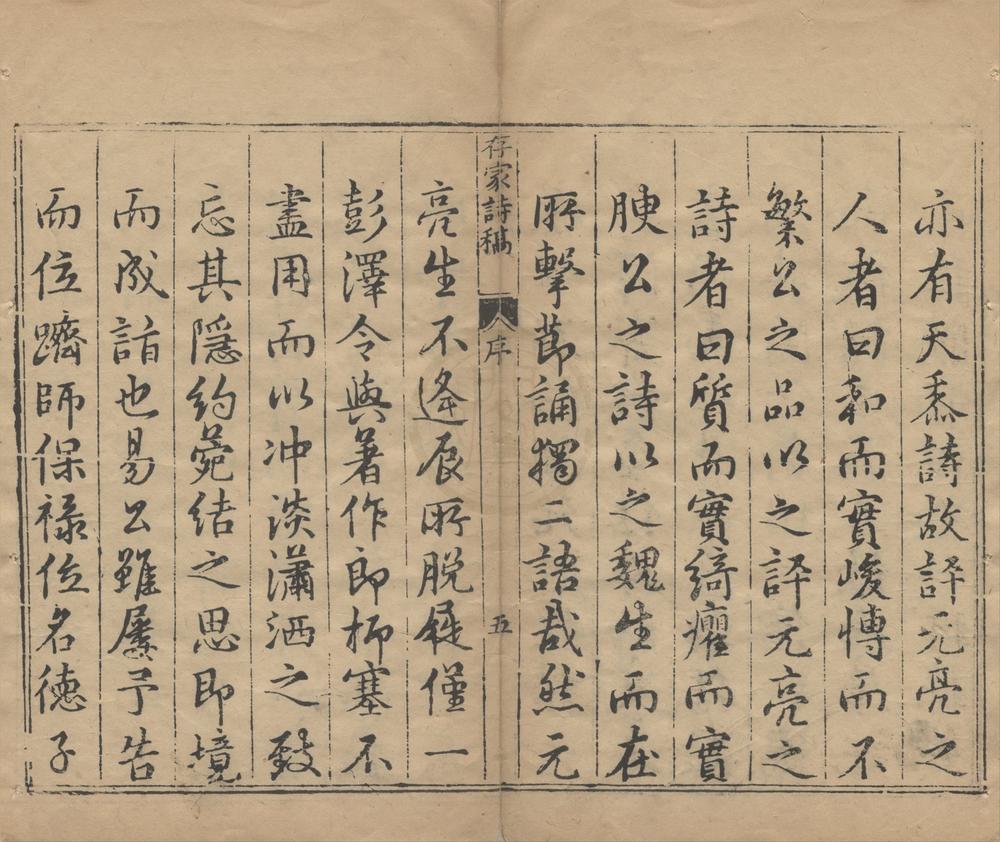 亦有天黍詩故評元亮之
人者曰和而實峻愽而不
繁公之品以之評元亮之
詩者曰質而實綺癯而實
腴公之詩以之魏生而在
所擊節誦獨二語哉然元
存家詩稿
序
五
亮生不逢辰所脱屣僅一
彭澤令與著作郎抑塞不
盡用而以冲淡瀟洒之致
忘其隱約菀結之思即境
而成詣也易公雖屢予告
而位躋師保祿位名德子